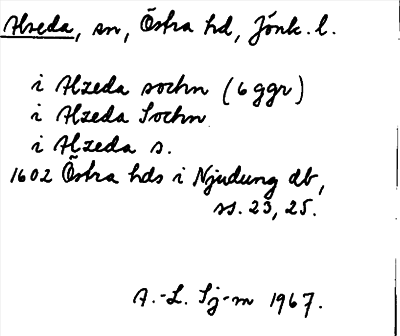 Alseda, sn, Östra hd, Jönk. l.
i Alzeda sochn (6 ggr)
i Alzeda Sochn
i Alzeda s.
1602 Östra hds i Njudung db,
ss. 23, 25.
A.-L. Sj-m 1967.